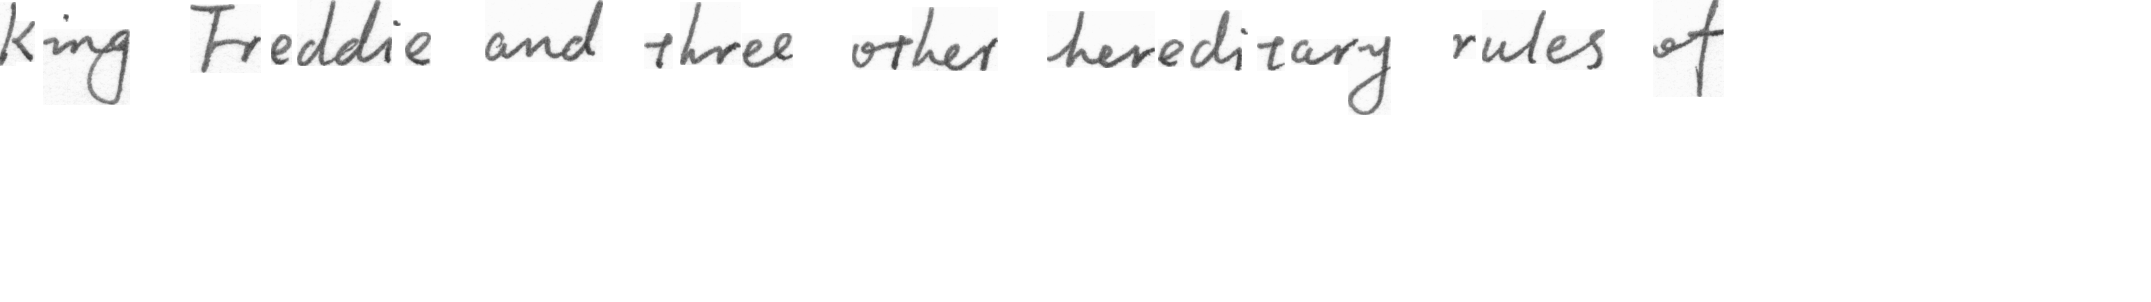 King Freddie and three other hereditary rules of